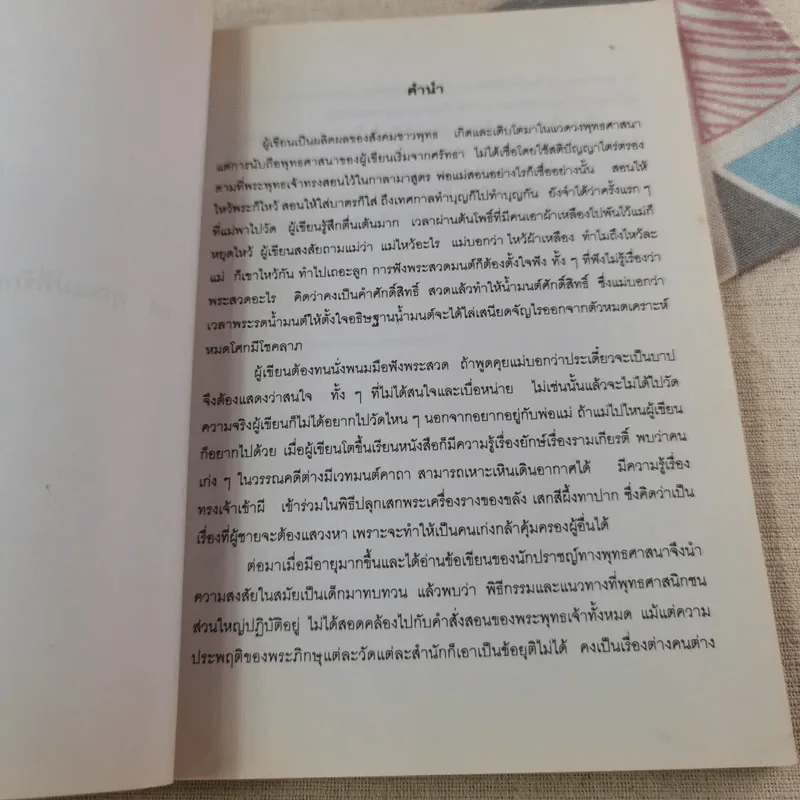 คำนำ
ผู้เขียนเป็นผลิตผลของสังคมชาวพุทธ เกิดและเติบโตมาในแวดวงพุทธศาสนา
แต่การนับถือพุทธศาสนาของผู้เขียนเริ่มจากศรัทธา ไม่ได้เชื่อโดยใช้สติปัญญาไตร่ตรอง
ตามที่พระพุทธเจ้าทรงสอนไว้ในกาลามาสูตร พ่อแม่สอนอย่างไรก็เชื่ออย่างนั้น สอนให้
ไหว้พระก็ไหว้ สอนให้ใส่บาตรก็ใส่ ถึงเทศกาลทำบุญก็ไปทำบุญกัน ยังจำได้ว่าครั้งแรก ๆ
ที่แม่พาไปวัด ผู้เขียนรู้สึกตื่นเต้นมาก เวลาผ่านต้นโพธิ์ที่มีคนเอาผ้าเหลืองไปพันไว้แม่ก็
หยุดไหว้ ผู้เขียนสงสัยถามแม่ว่า แม่ไหว้อะไร แม่บอกว่า ไหว้ผ้าเหลือง ทำไมถึงไหว้ละ
แม่ ก็เขาไหว้กัน ทำไปเถอะลูก การฟังพระสวดมนต์ก็ต้องตั้งใจฟัง ทั้ง ๆ ที่ฟังไม่รู้เรื่องว่า
พระสวดอะไร คิดว่าคงเป็นคำศักดิ์สิทธิ์ สวดแล้วทำให้น้ำมนต์ศักดิ์สิทธิ์ ซึ่งแม่บอกว่า
เวลาพระรดน้ำมนต์ให้ตั้งใจอธิษฐานน้ำมนต์จะได้ไล่เสนียดจัญไรออกจากตัวหมดเคราะห์
หมดโศกมีโชคลาภ
ผู้เขียนต้องทนนั่งพนมมือฟังพระสวด ถ้าพูดคุยแม่บอกว่าประเดี๋ยวจะเป็นบาป
จึงต้องแสดงว่าสนใจ ทั้ง ๆ ที่ไม่ได้สนใจและเบื่อหน่าย ไม่เช่นนั้นแล้วจะไม่ได้ไปวัด
ความจริงผู้เขียนก็ไม่ได้อยากไปวัดไหน ๆ นอกจากอยากอยู่กับพ่อแม่ ถ้าแม่ไปไหนผู้เขียน
ก็อยากไปด้วย เมื่อผู้เขียนโตขึ้นเรียนหนังสือก็มีความรู้เรื่องยักษ์เรื่องรามเกียรติ์ พบว่าคน
เก่ง ๆ ในวรรณคดีต่างมีเวทมนต์คาถา สามารถเหาะเหินเดินอากาศได้ มีความรู้เรื่อง
ทรงเจ้าเข้าผี เข้าร่วมในพิธีปลุกเสกพระเครื่องรางของขลัง เสกสีผึ้งทาปาก ซึ่งคิดว่าเป็น
เรื่องที่ผู้ชายจะต้องแสวงหา เพราะจะทำให้เป็นคนเก่งกล้าคุ้มครองผู้อื่นได้
ต่อมาเมื่อมีอายุมากขึ้นและได้อ่านข้อเขียนของนักปราชญ์ทางพุทธศาสนาจึงนำ
ความสงสัยในสมัยเป็นเด็กมาทบทวน แล้วพบว่า พิธีกรรมและแนวทางที่พุทธศาสนิกชน
ส่วนใหญ่ปฏิบัติอยู่ ไม่ได้สอดคล้องไปกับคำสั่งสอนของพระพุทธเจ้าทั้งหมด แม้แต่ความ
ประพฤติของพระภิกษุแต่ละวัดแต่ละสำนักก็เอาเป็นข้อยุติไม่ได้ คงเป็นเรื่องต่างคนต่าง